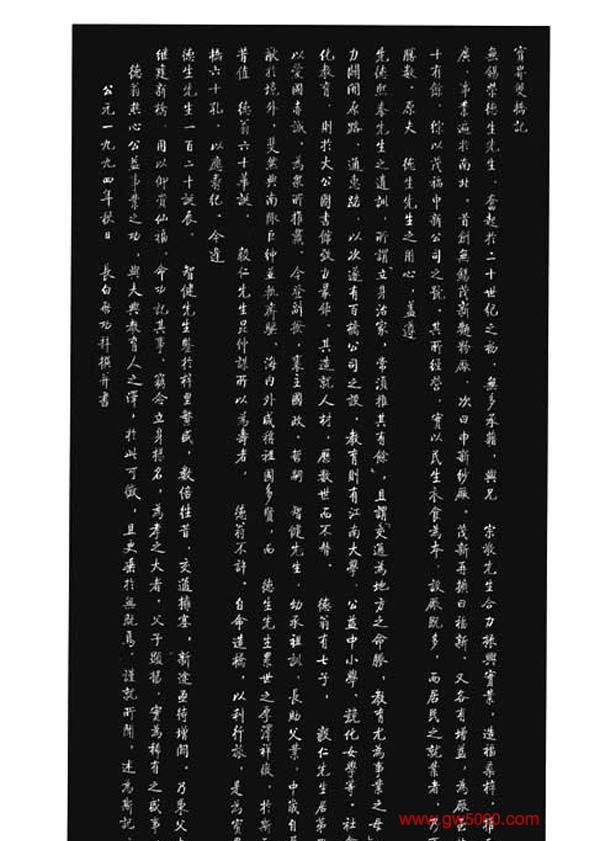 寶界雙橋記
無錫榮德生先生，奮起於二十世紀之初，無多承藉，與兄　宗敬先生合力振興實業，造福桑梓，推
廣，事業遍於南北。首創無錫茂新麵粉廠，次曰申新紗廠。茂新再擴曰福新，又各有增益，為廠
十有餘，綜以茂福申新公司之號。其所經營，實以民生衣食為本，設廠既多，而居民之就業者，乃
勝數。原夫　德生先生之用心，蓋遵
先德熙泰先生之遺訓，所謂立身治家，常須推其有餘」，且謂「交通為地方之命脈，教育尤為事業之母
力闢開原路，通惠路，以次遂有百橋公司之設，教育則有江南大學，公益中小學，競化女學等，社會
化教育，則於大公圖書館致力最鉅。其造就人材，歷數世而不替。　德翁有七子，　毅仁先生居第
以愛國赤誠，為眾所推戴，令登副揆，襄主國政。哲嗣　智健先生，幼承祖訓，長助父業，中歲自
猷於境外，斐然與南隣巨紳並執齊驅。海內外咸稱祖國多賢，而　德生先生累世之厚澤祥徵，於斯
昔值　德翁六十華誕，　毅仁先生昆仲謀所以為壽者，　德翁不許。自命造橋，以利行旅，是為寶
橋六十孔，以應壽紀。今逢
德生先生一百二十誕辰，　智健先生鑒於梓里繁盛，數倍往昔，交通擁塞，新途亟待增闢。乃秉父
繼建新橋，用以仰質仙極，命功記其事。竊念立身揚名，為孝之大者，父子顯揚，實為稀有之盛事
德翁熱心公益事業之功，與夫興教育人之澤，於此可徵，且更垂於無既焉，謹就所聞，述為斯記
公元一九九四年秋日　長白啟功拜撰并書
www.gw5000.com